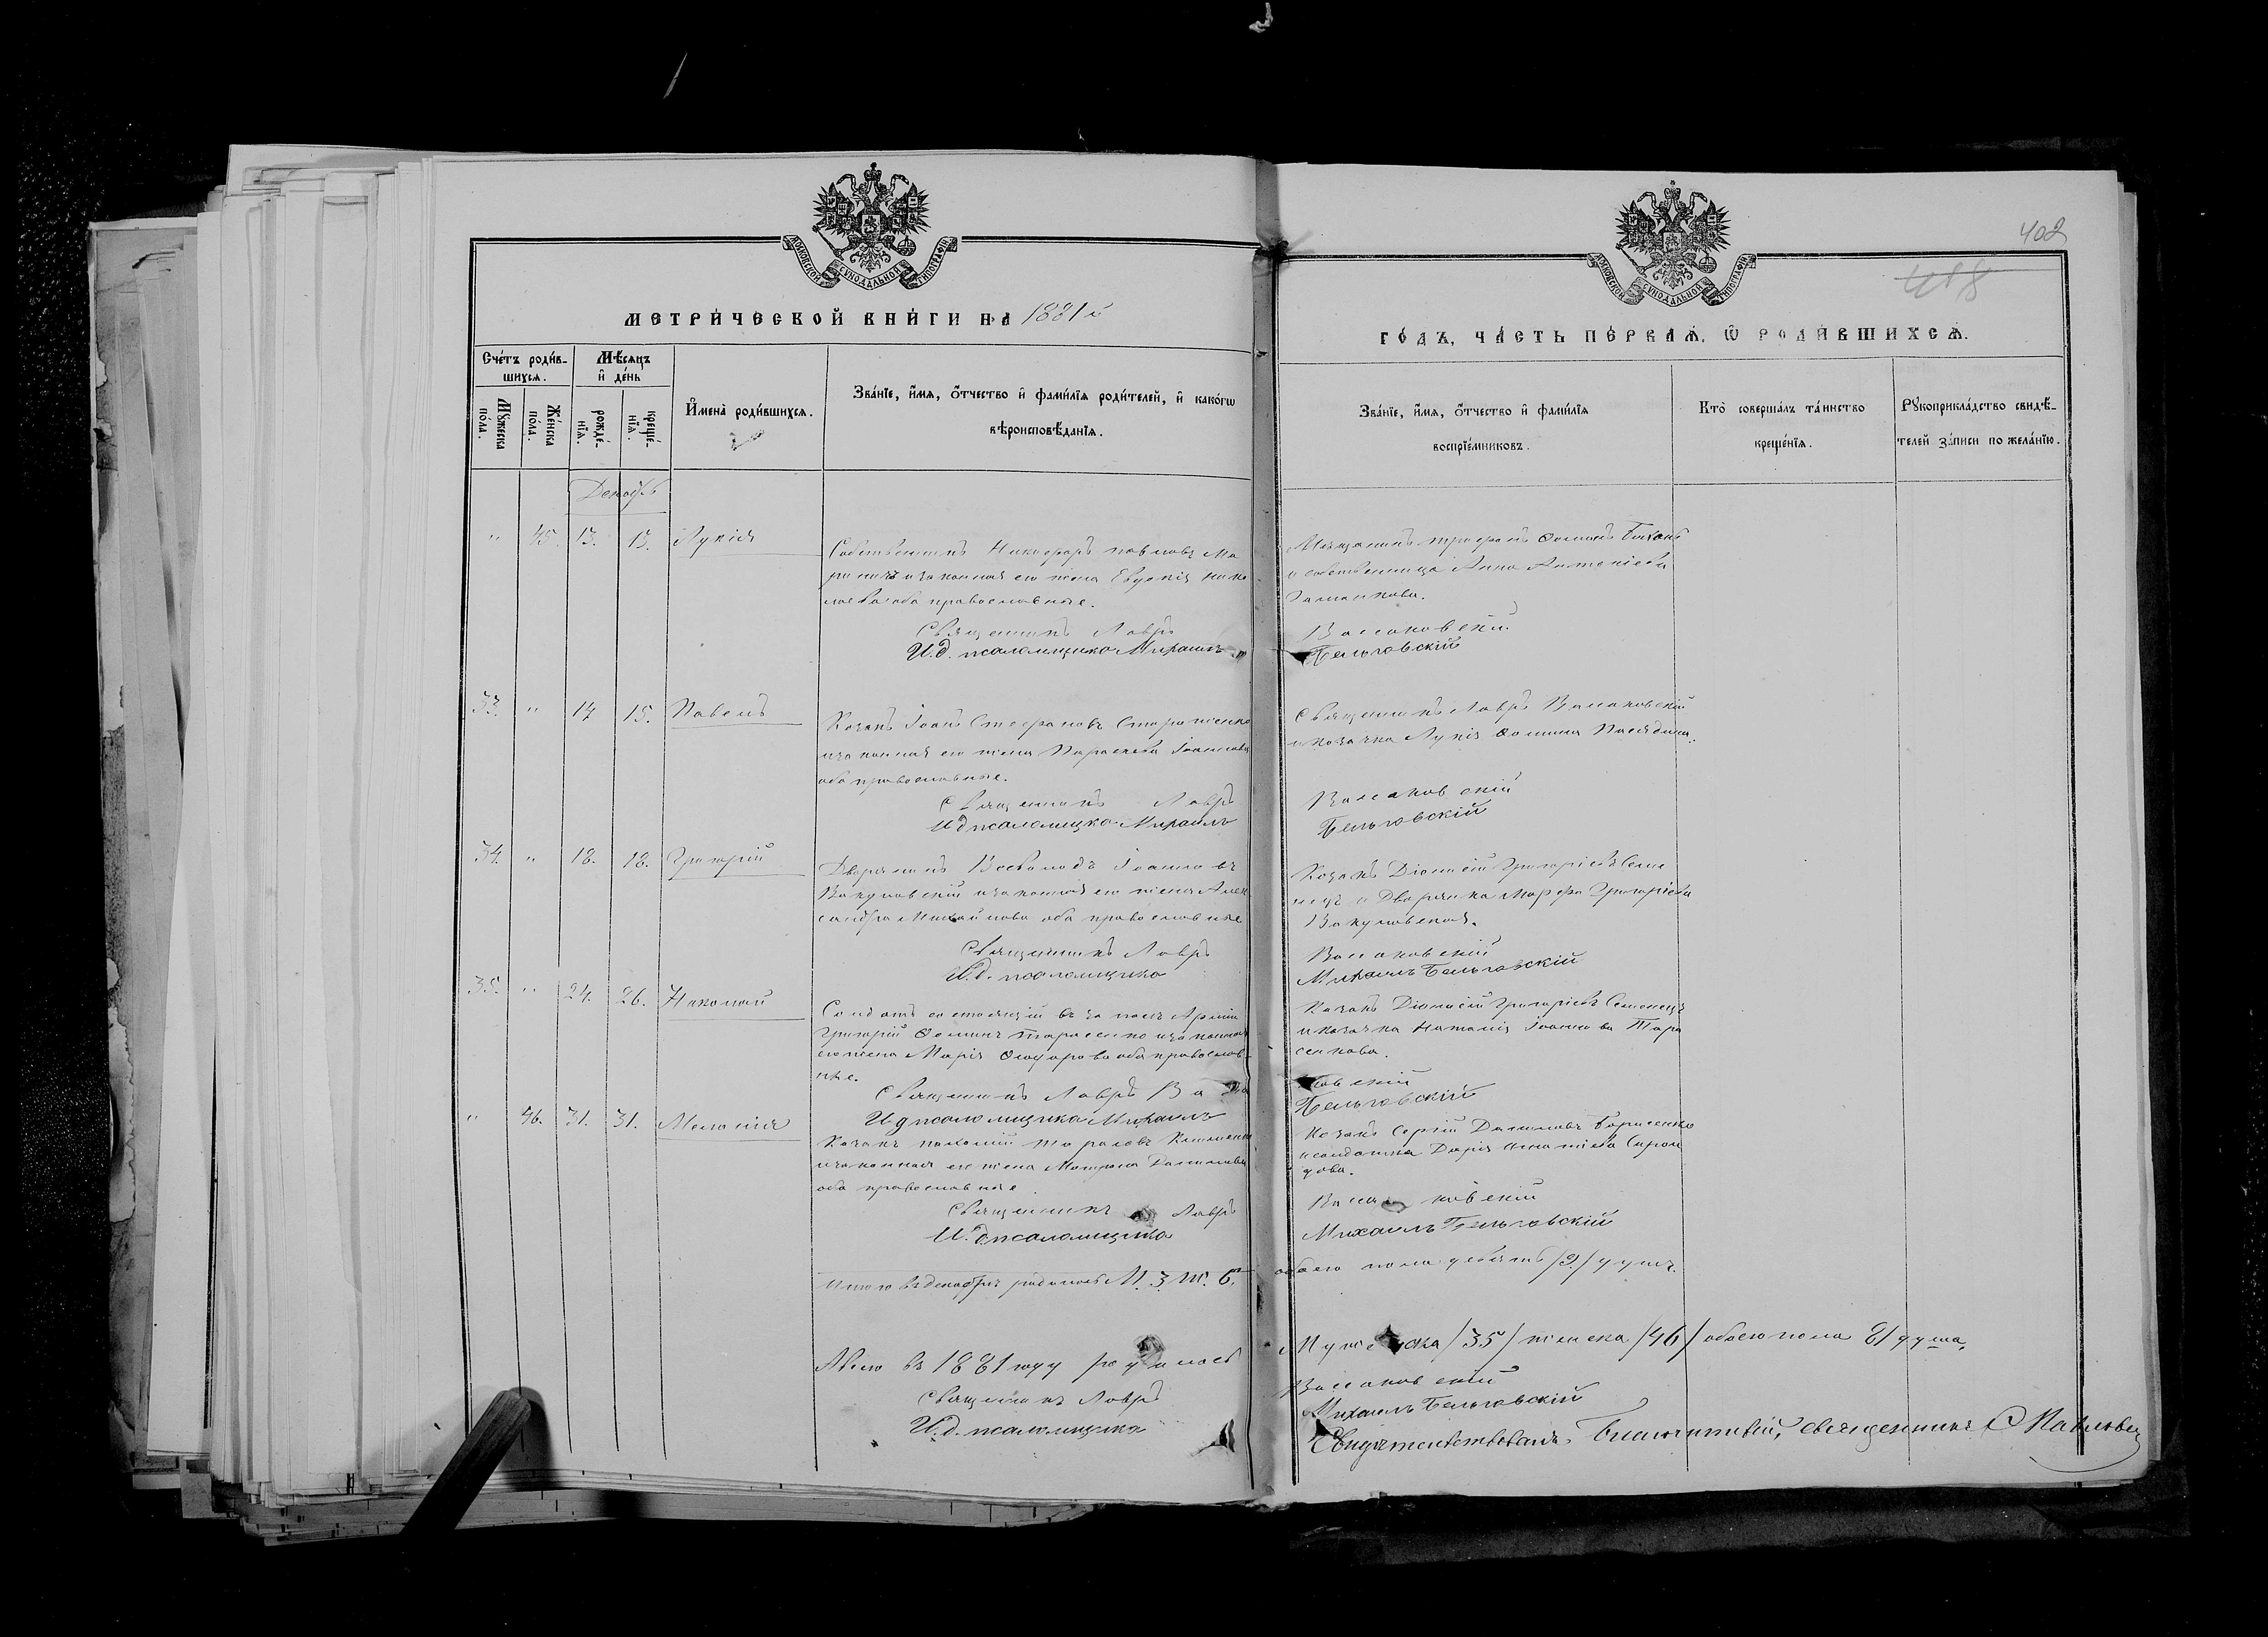 МОСКОВСКОЙ СУНОДАЛЬНОЙ ТИПОГРАФІИ
МЕТРИ́ЧЕСКОЙ КНИ́ГИ НА 1881 й
Сче́тъ роди́в-
шихсѧ.
Мѣ́сѧцъ
и҆ де́нь
Мꙋ́жеска по́ла.
Же́нска по́ла.
рожде́-нїѧ.
креще́-нїѧ.
И҆мена̀ роди́вшихсѧ.
Зва́нїе, и҆́мѧ, ѻ҆́тчество и҆ фами́лїѧ роди́телей, и҆ како́гѡ
вѣроисповѣ́данїѧ.
Декабрь
" 45. 13. 13. Лукія
Собственникъ Никифоръ Павловъ Ма
и законная его жена Евдокія Нико
лаева оба православные.
Священникъ Лавръ
И.д. псаломщика Михаилъ
33. " 14 15. Павелъ
Козакъ Іоанъ Стефановъ
и законная его жена Параскева Іоаннова
оба православные.
Священникъ Лавръ
И д псаломщика Михаилъ
34. " 18. 18. Григорій
Дворянинъ Всеволодъ Іоанновъ
Вакуловскій и законная его жена Алек
сандра Михайлова оба православные
Священникъ Лавръ
И.д. псаломщика
35. " 24. 26. Николай
Солдатъ состоящій въ запасѣ Арміи
Григорій Ѳоминъ Тарасенко и законная
его жена Марія Ѳеодорова оба православ-
ные.
Священникъ Лавръ
И д псаломщика Михаилъ
" 46. 31. 31. Меланія
Козакъ Тарасовъ
и законная его жена Матрона Даниилова
оба православные
Священникъ Лавръ
И. д псаломщика
Итого въ декабрѣ родилось М. 3. Ж. 6.
Всего въ 1881 году родилось
Священникъ Лавръ
И.д. псаломщика
402
418
МОСКОВСКОЙ СУНОДАЛЬНОЙ ТИПОГРАФІИ
ГО́ДЪ, ЧА́СТЬ ПЕ́РВАѦ, Ѡ҆ РОДИ́ВШИХСѦ.
Зва́нїе, и҆́мѧ, ѻ҆́тчество и҆ фами́лїѧ
воспрїе́мниковъ.
Кто̀ соверша́лъ та́инство
креще́нїѧ.
Рꙋкоприкла́дство свидѣ́-
телей за́писи по жела́нїю.
Мѣщанинъ Ѳоминъ
и собственница Анна Антоніева
Василковскій
Бельговскій
Священникъ Лавръ Василковскій
и козачка Лукія Ѳомина
Василковскій
Бельговскій
Козакъ Діонисій Григоріевъ Семе
нецъ и Дворянка Марфа Григоріева
Вакуловская.
Василковскій
Михаилъ Бельговскій
Козакъ Діонисій Григоріевъ Семенецъ
и козачка Наталія Іоаннова Тара
сенкова.
Бельговскій
Козакъ Сергій Данииловъ Борисенко
и солдатка Дарія
Михаилъ Бельговскій
обоего пола девять /9/ душъ.
Мужеска /35/ женска /46/ обоего пола 81 душа.
Василковскій
Михаилъ Бельговскій
Свидѣтельствовалъ Благочинный, священникъ